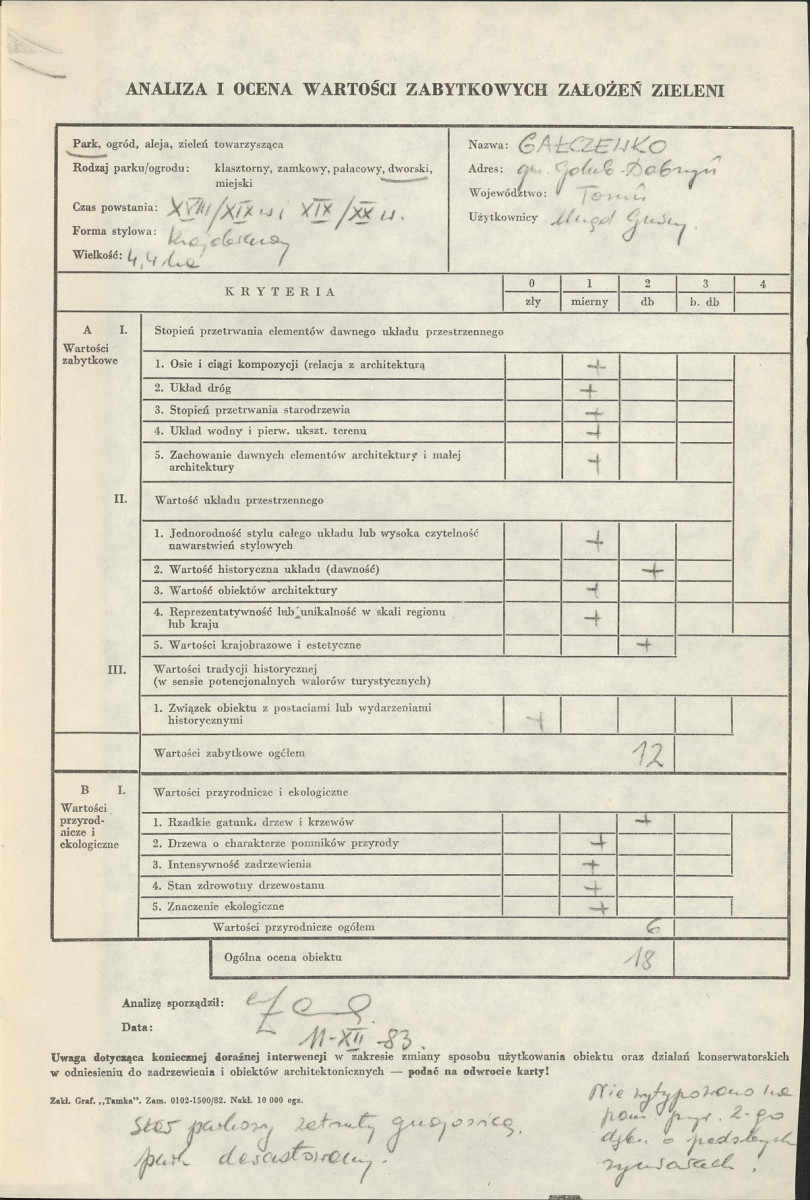 ANALIZA I OCENA WARTOŚCI ZABYTKOWYCH ZAŁOŻEŃ ZIELENI
Park, ogród, aleja, zieleń towarzysząca
Rodzaj parku/ogrodu: klasztorny, zamkowy, pałacowy, dworski,
miejski
Czas powstania: XVIII/XIX w i XIX/XX w.
Forma stylowa: Krajobrazowy
Wielkość: 4,4 ha
Nazwa: GAŁCZEWKO
Adres: gm. Golub-Dobrzyń
Województwo: Toruń
Użytkownicy Urząd Gminy
KRYTERIA
0 1 2 3 4
zły mierny db b. db
A I. Stopień przetrwania elementów dawnego układu przestrzennego
Wartości
zabytkowe
1. Osie i ciągi kompozycji (relacja z architekturą +
2. Układ dróg +
3. Stopień przetrwania starodrzewia +
4. Układ wodny i pierw. ukszt. terenu +
5. Zachowanie dawnych elementów architektury i małej
architektury +
II. Wartość układu przestrzennego
1. Jednorodność stylu całego układu lub wysoka czytelność
nawarstwień stylowych +
2. Wartość historyczna układu (dawność) +
3. Wartość obiektów architektury +
4. Reprezentatywność lub unikalność w skali regionu
lub kraju +
5. Wartości krajobrazowe i estetyczne +
III. Wartości tradycji historycznej
(w sensie potencjonalnych walorów turystycznych)
1. Związek obiektu z postaciami lub wydarzeniami
historycznymi +
Wartości zabytkowe ogółem 12
B I. Wartości przyrodnicze i ekologiczne
Wartości
przyrod-
nicze i
ekologiczne
1. Rzadkie gatunki drzew i krzewów +
2. Drzewa o charakterze pomników przyrody +
3. Intensywność zadrzewienia +
4. Stan zdrowotny drzewostanu +
5. Znaczenie ekologiczne +
Wartości przyrodnicze ogółem 6
Ogólna ocena obiektu 18
Analizę sporządził:
Data: 11-XII-83.
Uwaga dotycząca koniecznej doraźnej interwencji w zakresie zmiany sposobu użytkowania obiektu oraz działań konserwatorskich
w odniesieniu do zadrzewienia i obiektów architektonicznych — podać na odwrocie karty!
Zakł. Graf. „Tamka". Zam. 0102-1500/82. Nakł. 10 000 egz.
Staw parkowy zatruty gnojowicą.
park dewastowany.
Nie wytypowano na
pom. przyr. 2-go
dębu o podobnych
rozmiarach.